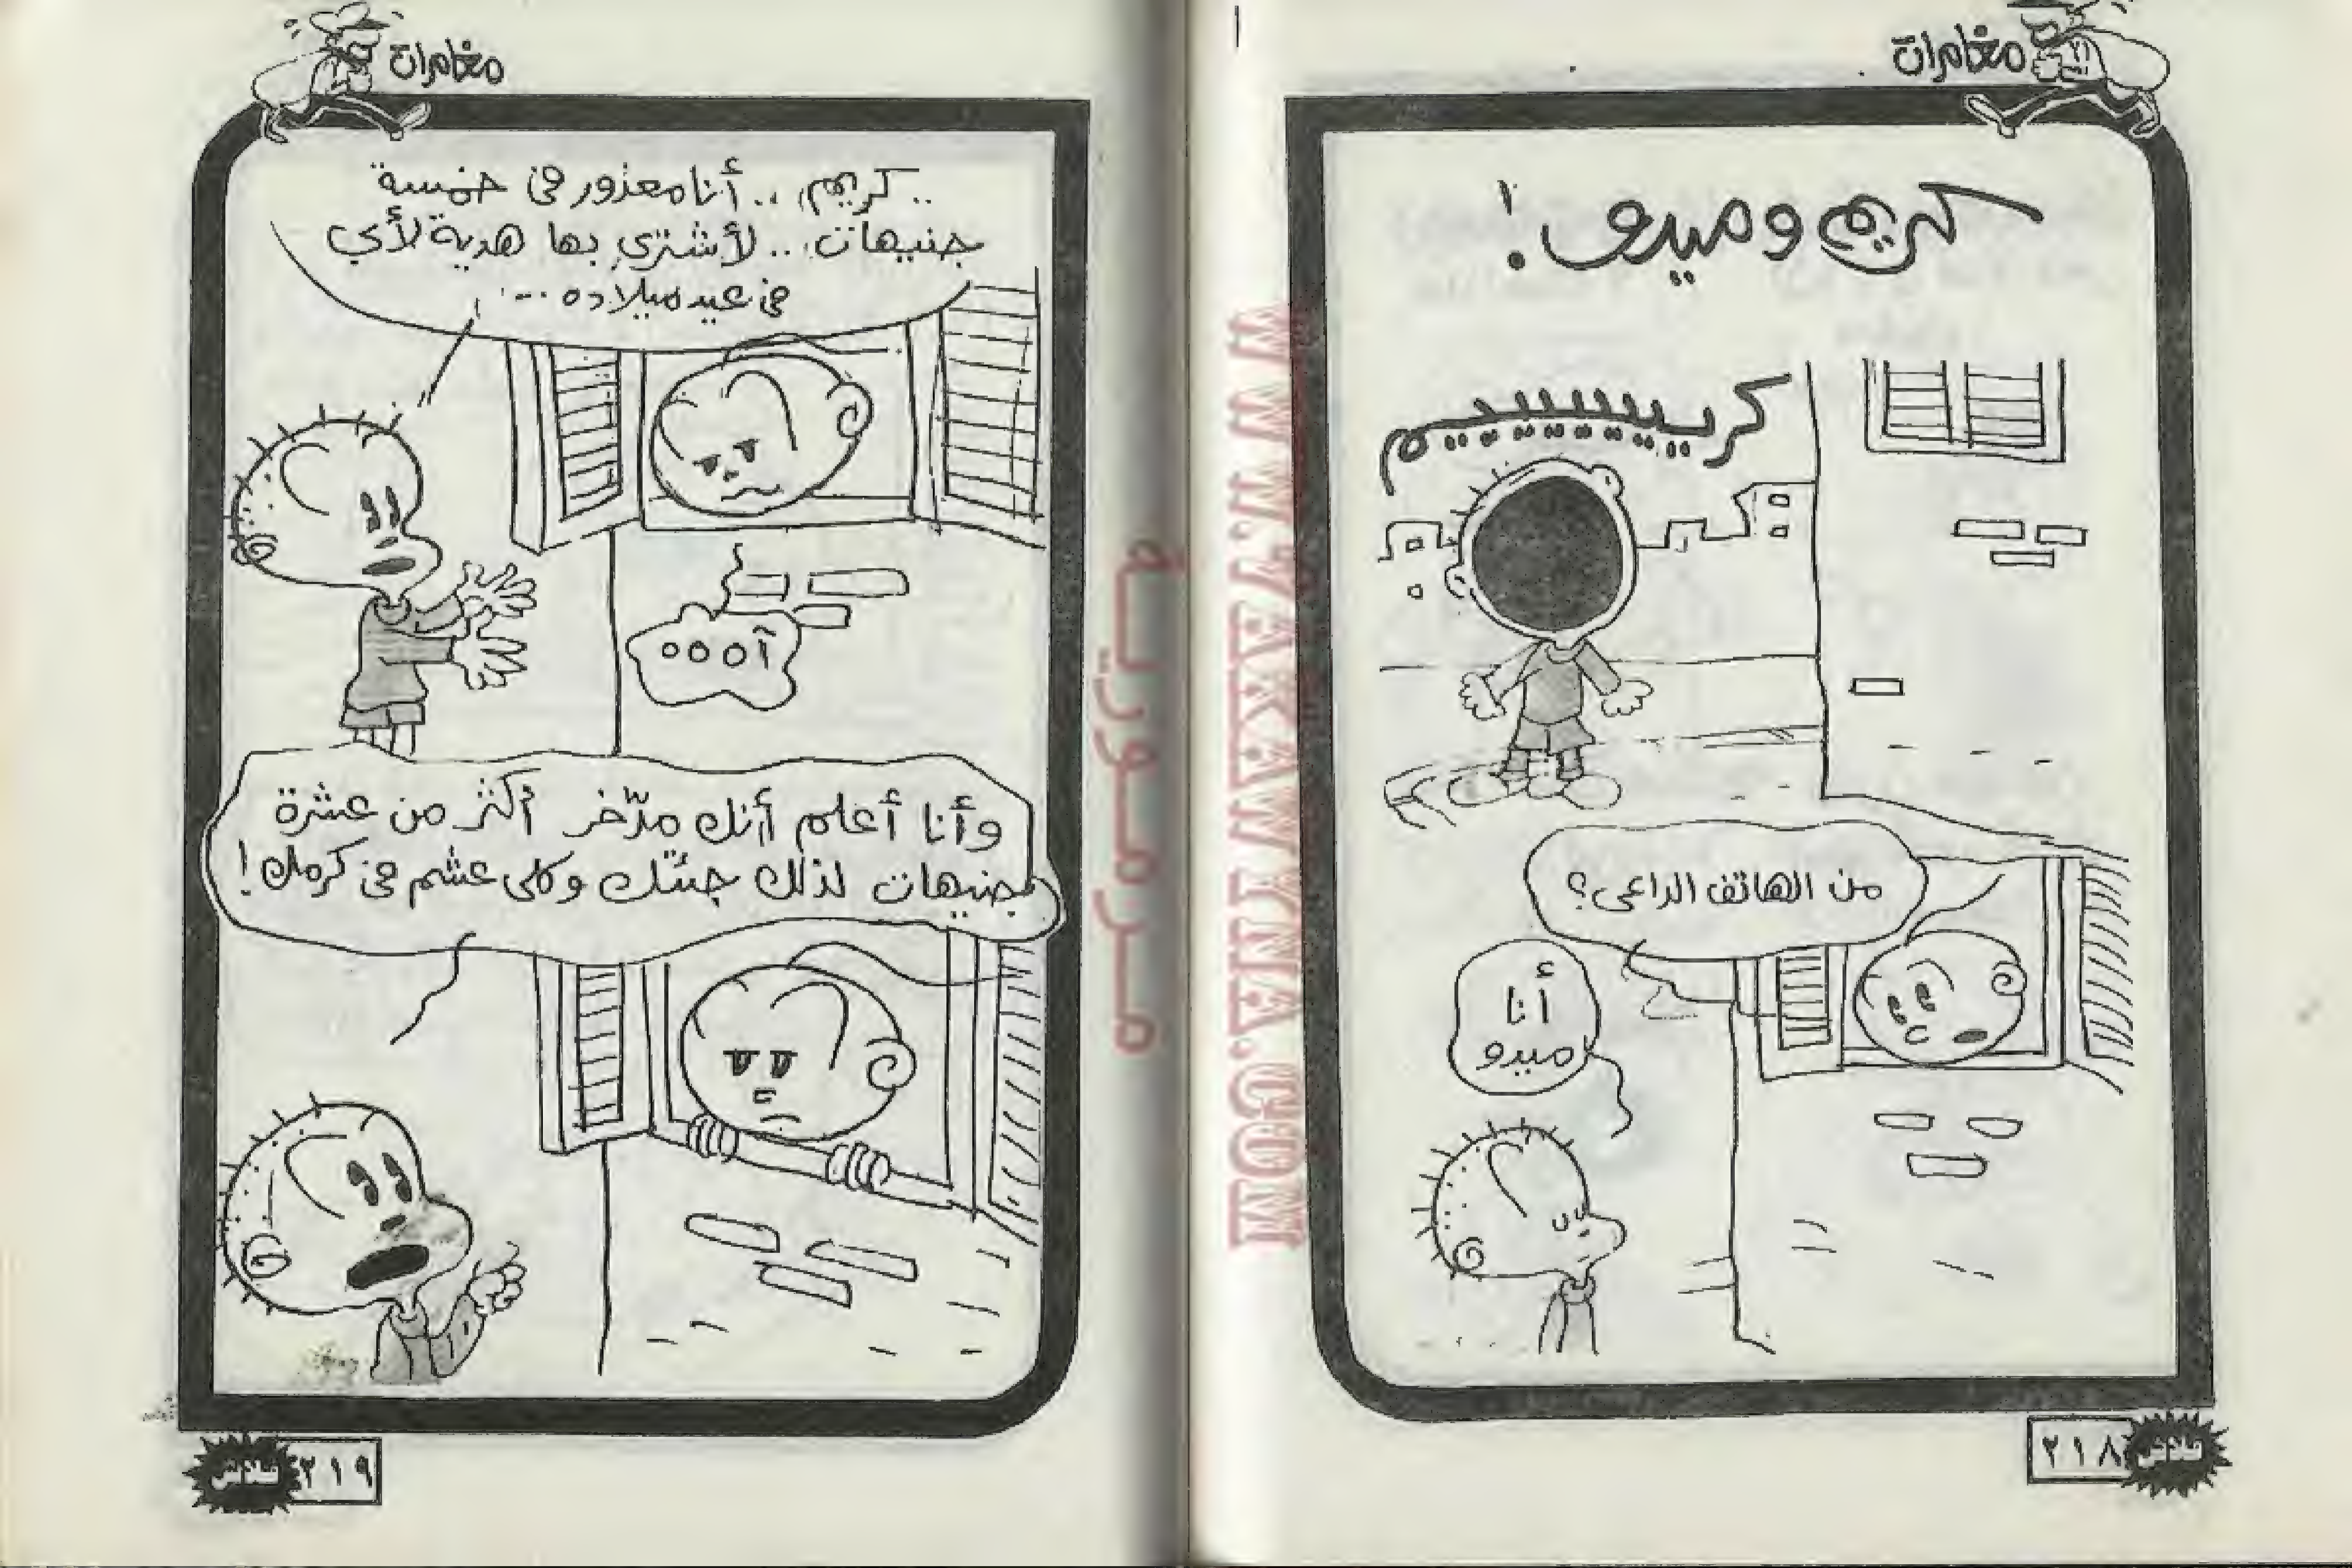 مغامرات
كريم وميدو !
كريييييييييم
من الهاتف الداعى؟
أنا
ميدو
٢١٨
فلاش
مغامرات
.. كريم .. أنا معذور فى خمسة
جنيهات .. لأشترى بها هدية لأبي
فى عيد ميلاده ...
آ ه ه ه
وأنا أعلم أنك مدّخر أكثر من عشرة
جنيهات لذلك جئتك وكلى عشم فى كرمك !
٢١٩
فلاش
WWW.YAKAWKNA.COM